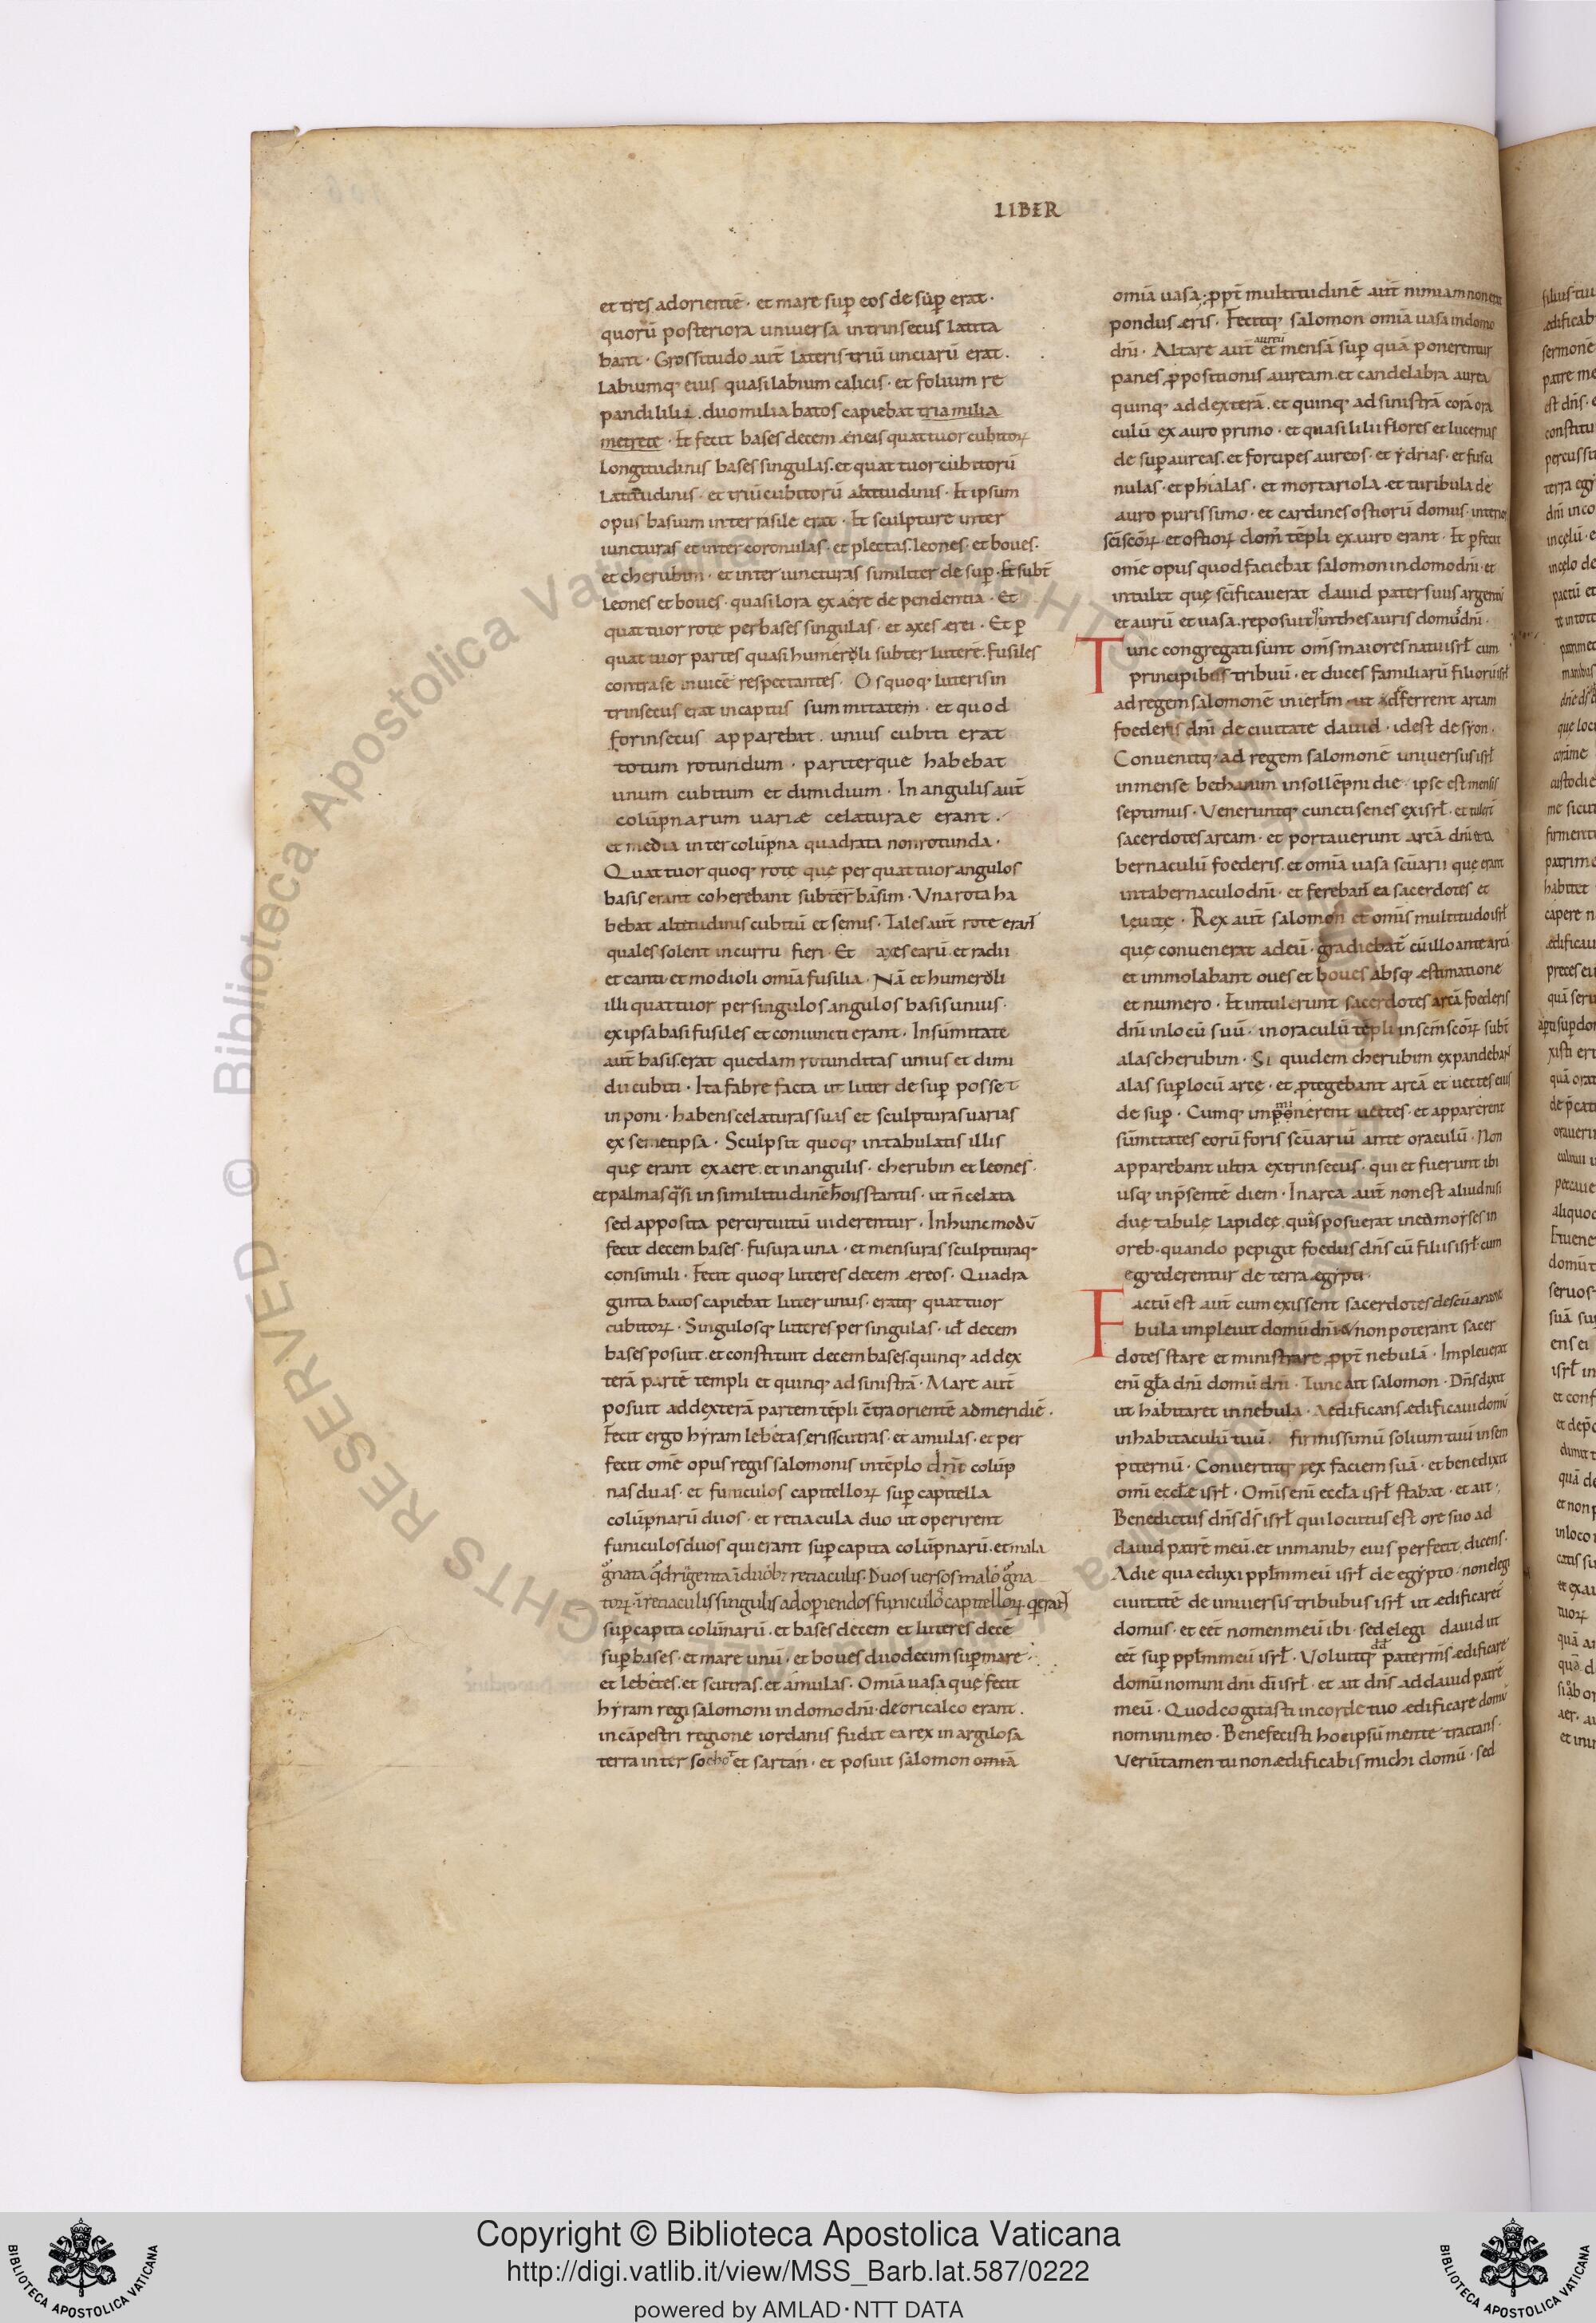 LIBER
et tres ad orientē · et mare sup̄ eos de sup̄ erat ·
quorū posteriora universa intrinsecus latita
bant · Grossitudo aut̄ lateris triū unciarū erat ·
Labiumq; eius quasi labium calicis · et folium re
pandi lilii . duo milia batos capiebat tria milia
metrete · Et fecit bases decem ęneas quattuor cubitoꝝ
Longitudinis bases singulas . et quattuor cubitorū
Latitudinis · et triū cubitorū altitudinis · Et ipsum
opus basium interrasile erat · Et sculpture inter
iuncturas et inter coronulas · et plectas . leones · et boves ·
et cherubim · et inter iuncturas similiter de sup̄ · Et subt̄
Leones et boves · quasi lora ex aere dependentia · Et
quattuor rote per bases singulas · et axes ęrei · Et p̄
quattuor partes quasi humeroli subter luterē . fusiles
contra se invicē respectantes · Os quoq; luteris in
trinsecus erat in capitis summitatem · et quod
forinsecus apparebat . unius cubiti erat
totum rotundum · pariterque habebat
unum cubitum et dimidium · In angulis aut̄
colūpnarum variæ celaturae erant ·
et media intercolūpna quadrata non rotunda ·
Quattuor quoq; rote quę per quattuor angulos
basis erant coherebant subter basim · Una rota ha
bebat altitudinis cubitū et semis · Tales aut̄ rote erant
quales solent in curru fieri · Et axes earū et radii
et canti · et modioli omīa fusilia · Nā et humeroli
illi quattuor per singulos angulos basis unius ·
ex ipsa basi fusiles et coniuncti erant · In sūmitate
aut̄ basis erat quedam rotunditas unius et dimi
dii cubiti · Ita fabre facta ut luter de sup̄ posset
inponi · habens celaturas suas et sculpturas varias
ex semetipsa · Sculpsit quoq; in tabulatis illis
quę erant ex aere . et in angulis · cherubin et leones ·
et palmas q̄si in similitudinē hoīs stantis · ut n̄ celata
sed apposita per circuitū viderentur · In hunc modū
fecit decem bases · fusura una · et mensura sculpturaq;
consimili · Fecit quoq; luteres decem ęreos · Quadra
ginta batos capiebat luter unus · eratq; quattuor
cubitoꝝ · Singulosq; luteres per singulas · id̄ decem
bases posuit . et constituit decem bases . quinq; ad dex
terā partē templi et quinq; ad sinistrā · Mare aut̄
posuit ad dexterā partem tēpli c̄tra orientē ad meridiē ·
Fecit ergo hyram lebetas . et scutras · et amulas · et per
fecit om̄e opus regis salomonis in tēplo dn̄i colūp
nas duas · et funiculos capitelloꝝ sup̄ capitella
colūpnarū duos · et retiacula duo ut operirent
funiculos duos qui erant sup̄ capita colūpnarū . et mala
g̊nata q̄dringenta ī duob; retiaculis · Duos versos malo g̊na
toꝝ . ī retiaculis singulis ad op̄iendos funiculos capitelloꝝ . q̄ erant
sup̄ capita colūnarū · et bases decem et luteres decē
sup̄ bases · et mare unū · et boves duodecim sup̄ mare ·
et lebetes · et scutras · et amulas · Omīa vasa quę fecit
hyram regi salomoni in domo dn̄i · de oricalco erant ·
in cāpestri regione iordanis fudit ea rex in argilosa
terra inter sochot et sartan · et posuit salomon omīa
omīa vasa · ꝓpt̄ multitudinē aut̄ nimiam non erat
pondus ęris · Fecitq; salomon omīa vasa in domo
dn̄i · Altare aut̄ aureū et mensā sup̄ quā ponerentur
panes ꝓpositionis auream . et candelabra aurea
quinq; ad dexterā . et quinq; ad sinistrā corā ora
culū ex auro primo · et quasi lilii flores et lucernas
de sup̄ aureas . et forcipes aureos · et ydrias · et fusci
nulas · et phialas · et mortariola · et turibula de
auro purissimo · et cardines ostiorū domus · interioris
sc̄i sc̄oꝝ · et ostioꝝ dom̄ tēpli ex auro erant · Et p̄fecit
om̄e opus quod faciebat salomon in domo dn̄i · et
intulit quę sc̄ificaverat david pater suus argenti
et aurū et vasa . reposuitq; in thesauris domus dn̄i ·
Tunc congregati sunt om̄s maiores natu isrl̄ cum
principibus tribuū · et duces familiarū filiorū isrl̄
ad regem salomonē in ierlm̄ · ut deferrent arcam
foederis dn̄i de civitate david · id est de syon ·
Convenitq; ad regem salomonē universus isrl̄
in mense bethanim in sollēpni die · ipse est mensis
septimus · Veneruntq; cuncti senes ex isrl̄ · et tulert̄
sacerdotes arcam · et portaverunt arcā dn̄i et ta
bernaculū foederis . et omīa vasa sc̄uarii quę erant
in tabernaculo dn̄i · et ferebant̄ ea sacerdotes et
levitę · Rex aut̄ salomon et omīs multitudo isrl̄
quę convenerat ad eū · gradiebat̄ cū illo ante arcā
et immolabant oves et boves absq; ęstimatione
et numero · Et intulerunt sacerdotes arcā foederis
dn̄i in locū suū · in oraculū tēpli in sc̄m sc̄oꝝ subt̄
alas cherubim · Si quidem cherubim expandebant
alas sup̄ locū arcę · et ꝓtegebant arcā et vectes eius
de sup̄ · Cumq; eminerent vectes · et apparerent
sūmitates eorū foris sc̄uariū ante oraculū · Non
apparebant ultra extrinsecus · qui et fuerunt ibi
usq; in p̄sentē diem · In arca aut̄ non est aliud nisi
duę tabulę lapideę quas posuerat in ea moyses in
oreb · quando pepigit foedus dn̄s cū filiis isrl̄ · cum
egrederentur de terra ęgypti ·
Factū est aut̄ cum exissent sacerdotes de sc̄uario ne
bula implevit domū dn̄i · et non poterant sacer
dotes stare et ministrare ꝓpt̄ nebulā · Impleverat
enī gl̄a dn̄i domū dn̄i · Tunc ait salomon · Dn̄s dixit
ut habitaret in nebula · Aedificans ædificavi domū
in habitaculū tuū · firmissimū solium tuū in sem
piternū · Convertitq; rex faciem suā · et benedixit
omī eccl̄e isrl̄ · Omīs enī eccl̄a isrl̄ stabat · et ait ·
Benedictus dn̄s ds̄ isrl̄ qui locutus est ore suo ad
david patrē meū . et in manib; eius perfecit dicens ·
A die qua eduxi ppl̄m meū isrl̄ de egypto · non elegi
civitatē de universis tribubus isrl̄ ut ædificaret̄
domus · et eēt nomen meū ibi · sed elegi david ut
eēt sup̄ ppl̄m meū isrl̄ · Voluitq; dd̄ pater m̄s ędificare
domū nomini dn̄i dī isrl̄ · et ait dn̄s ad david patrē
meū · Quod cogitasti in corde tuo ædificare domū
nomini meo · Benefecisti hoc ipsū mente tractans ·
Verūtamen tu non ædificabis michi domū · sed
Copyright © Biblioteca Apostolica Vaticana
http://digi.vatlib.it/view/MSS_Barb.lat.587/0222
powered by AMLAD·NTT DATA